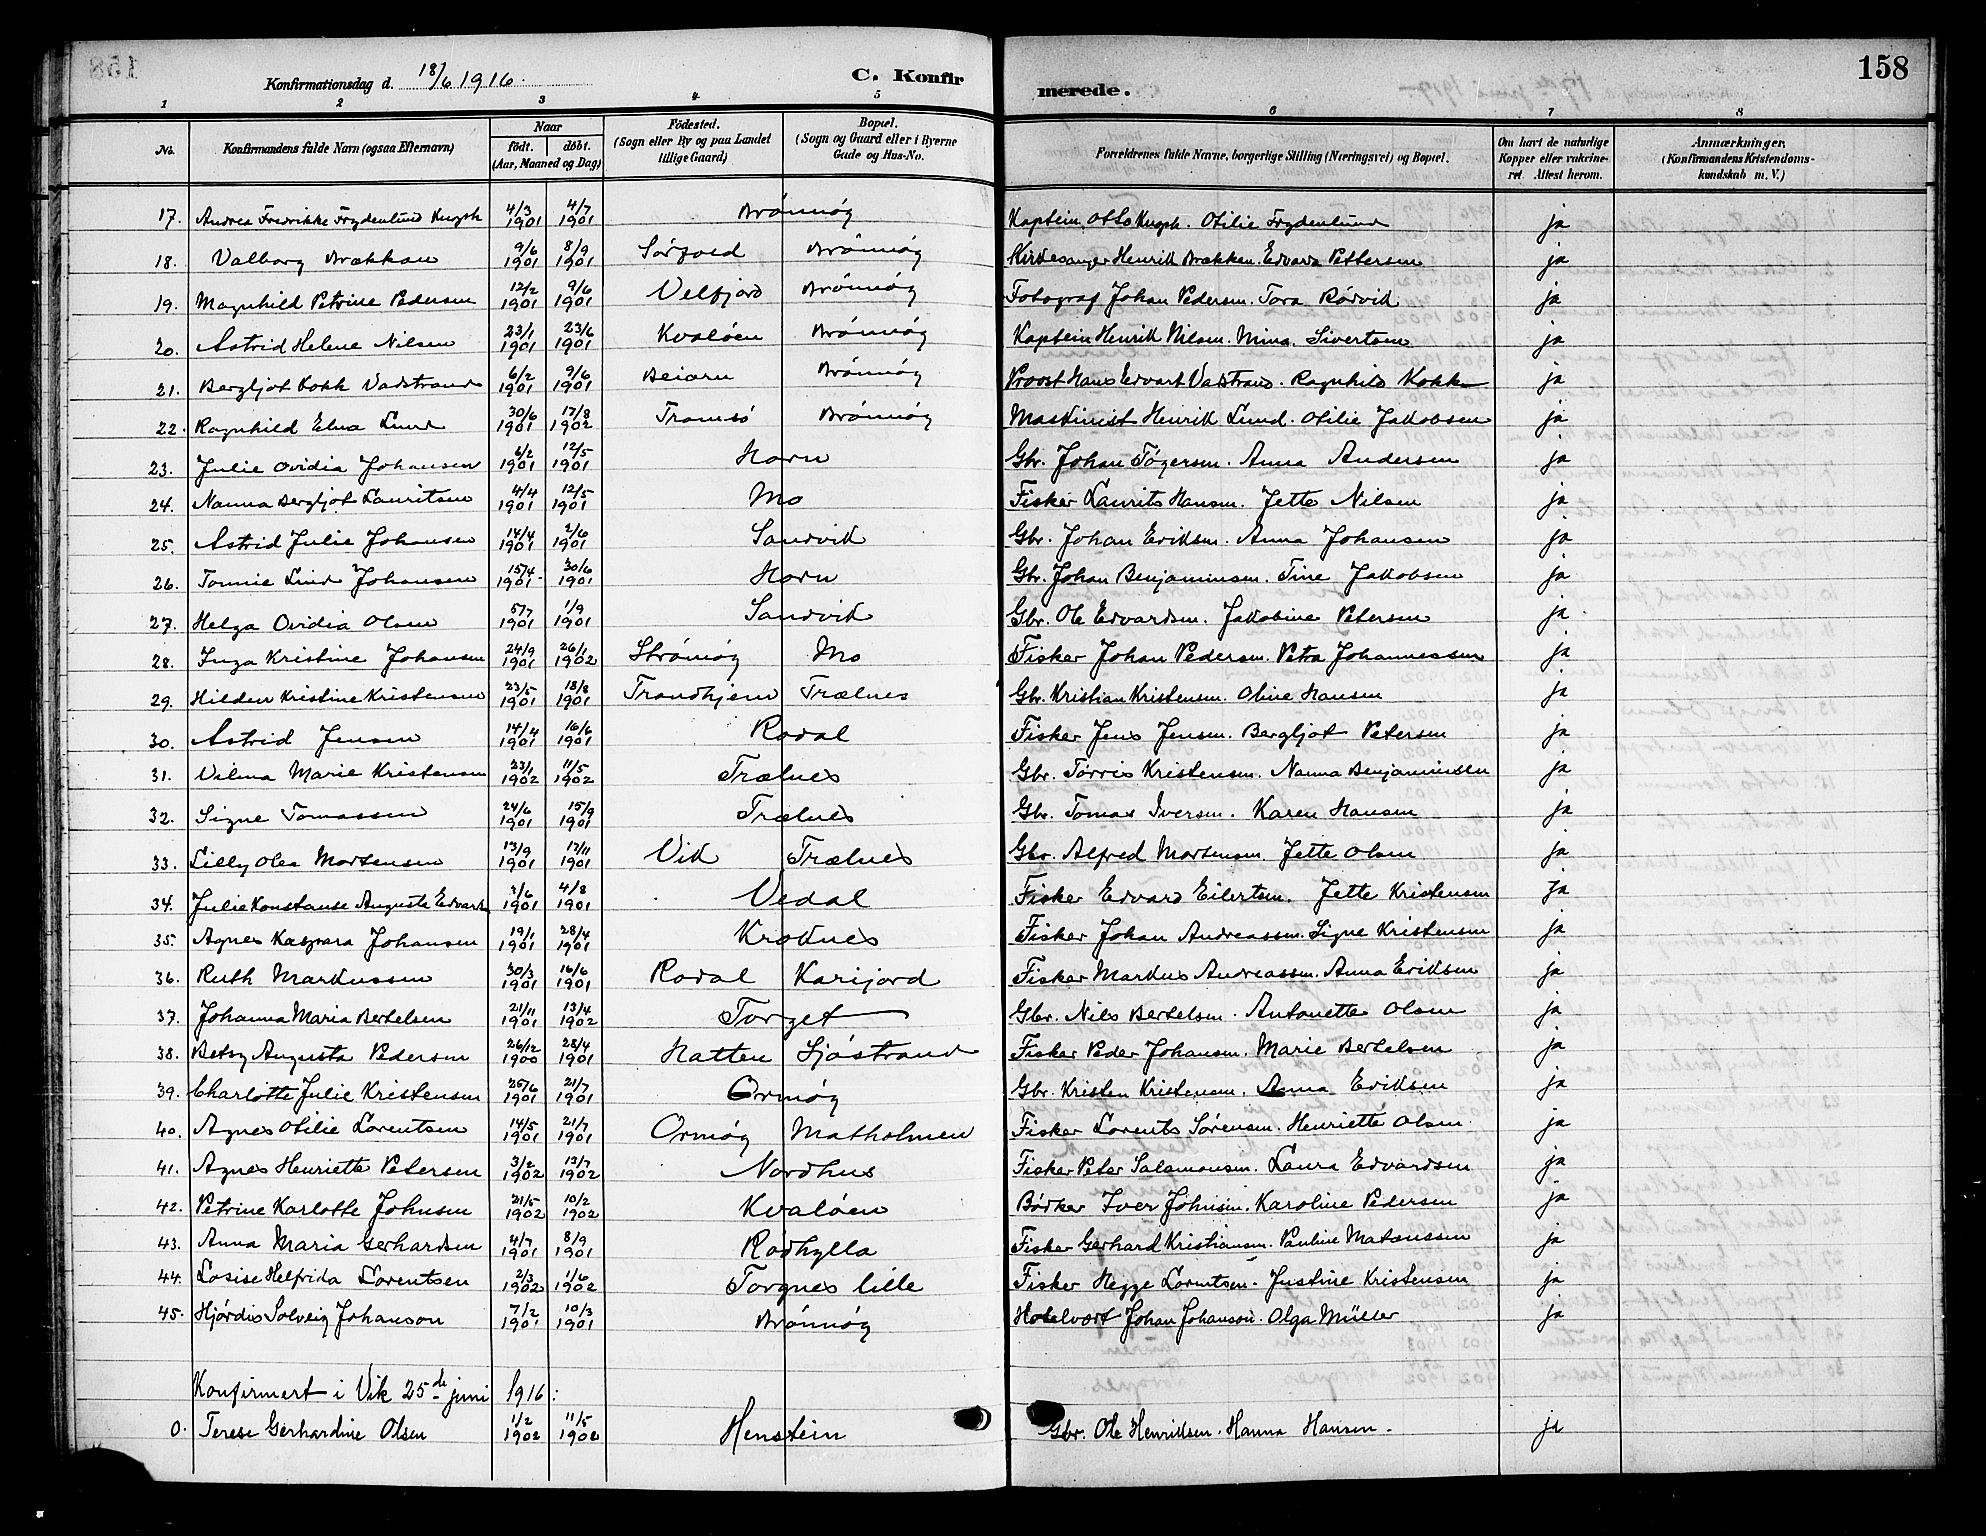 158
Konfirmationsdag d. 18/6 1916. C. Konfirmerede.
1 2 3 4 5 6 7 8
No. Konfirmandens fulde Navn (ogsaa Efternavn) Naar født. døbt. (Aar, Maaned og Dag) Fødested. (Sogn eller By og paa Landet tillige Gaard) Bopæl. (Sogn og Gaard eller i Byerne Gade og Hus-No. Forældrenes fulde Navne, borgerlige Stilling (Næringsvei) og Bopæl. Om havt de naturlige Kopper eller vakcineret. Attest herom. Anmærkninger, (Konfirmandens Kristendomskundskab m. V.)
17. Andrea Fredrikke Frydenlund 4/3 1901 4/7 1901 Brønnøy Kaptein Otto. Otilie Frydenlund ja
18. Valborg Brækkan 9/6 1901 8/9 1901 Brønnøy Kirkesanger Henrik Brækken. Edvarda Pettersen ja
19. Magnhild Petrine Pedersen 12/2 1901 9/6 1901 Velfjord Brønnøy Fotograf Johan Pedersen. Tora Rødvik ja
20. Astrid Helene Nilsen 23/1 1901 23/6 1901 Kvaløen Brønnøy Kaptein Henrik Nilsen. Mina Sivertsen ja
21. Bergljot Kokk Vadstrand 6/2 1901 9/6 1901 Beiarn Brønnøy Provst Hans Edvart Vadstrand. Ragnhild Kokk ja
22. Ragnhild Elna Lund 30/6 1901 17/8 1902 Tromsø Brønnøy Maskinist Henrik Lund. Otilie Jakobsen ja
23. Julie Ovidia Johansen 6/2 1901 12/5 1901 Horn Gbr. Johan Tøgersen. Anna Andersen ja
24. Nanna Bergljot Lauritsen 4/4 1901 12/5 1901 Mo Fisker Laurits Hansen. Jette Nilsen ja
25. Astrid Julie Johansen 14/4 1901 2/6 1901 Sandvik Gbr. Johan Eriksen. Anna Johansen ja
26. Tomine Lind Johansen 15/4 1901 30/6 1901 Horn Gbr. Johan Benjaminsen. Tine Jakobsen ja
27. Helga Ovidia Olsen 5/7 1901 1/9 1901 Sandvik Gbr. Ole Edvardsen. Jakobine Petersen ja
28. Inga Kristine Johansen 24/9 1901 26/1 1902 Strømøy Mo Fisker Johan Pedersen. Petra Johannessen ja
29. Hildur Kristine Kristensen 23/5 1901 18/8 1901 Trondhjem Trælnes Gbr. Kristian Kristensen. Oline Hansen ja
30. Astrid Jensen 14/4 1901 16/6 1901 Rodal Fisker Jens Jensen. Bergljot Petersen ja
31. Vilma Marie Kristensen 23/1 1902 11/5 1902 Trælnes Gbr. Tørris Kristensen. Nanna Benjaminsen ja
32. Signe Tomassen 24/6 1901 15/9 1901 Trælnes Gbr. Tomas Iversen. Karen Hansen ja
33. Lilly Olea Mortensen 13/9 1901 17/11 1901 Vik Trælnes Gbr. Alfred Mortensen. Jette Olsen ja
34. Julie Konstanse Augusta 4/8 1901 Vedal Fisker Edvard Eilertsen. Jette Kristensen ja
35. Agnes Kaspara Johansen 19/1 1901 28/4 1901 Kroknes Fisker Johan Andreassen. Signe Kristensen ja
36. Ruth Markussen 30/3 1901 16/6 1901 Rodal Karijord Fisker Markus Andreassen. Anna Eriksen ja
37. Johanna Maria Bertelsen 21/11 1901 13/4 1902 Torget Gbr. Nils Bertelsen. Antonette Olsen ja
38. Betsy Augusta Pedersen 26/12 1900 28/4 1901 Hatten Sjøstrand Fisker Peder Johansen. Marie Bertelsen ja
39. Charlotte Julie Kristensen 25/6 1901 21/7 1901 Ormøy Gbr. Kristen Kristensen. Anna Eriksen ja
40. Agnes Otilie Lorentsen 14/5 1901 21/7 1901 Ormøy Matholmen Fisker Lorents Sørensen. Henriette Olsen ja
41. Agnes Henriette Petersen 3/2 1902 13/7 1902 Nordhus Fisker Peter Salamonsen. Laura Edvardsen ja
42. Petrine Karlotte Johnsen 21/5 1902 10/2 1902 Kvaløen Bødker Iver Johnsen. Karoline Pedersen ja
43. Anna Maria Gerhardsen 4/7 1901 8/9 1901 Rodhylla Fisker Gerhard Kristiansen. Pauline Mateussen ja
44. Losise Helfrida Lorentsen 2/3 1902 1/6 1902 Torgnes lille Fisker Hegge Lorentsen. Justine Kristensen ja
45. Hjørdis Solveig Johanson 7/2 1901 10/3 1901 Brønnøy Hotelvert Johan Johanson. Olga Müller ja
Konfirmert i Vik 25de juni 1916:
0. Terese Gerhardine Olsen 1/2 1902 11/5 1902 Henstein Gbr. Ole Henriksen. Hanna Hansen. ja